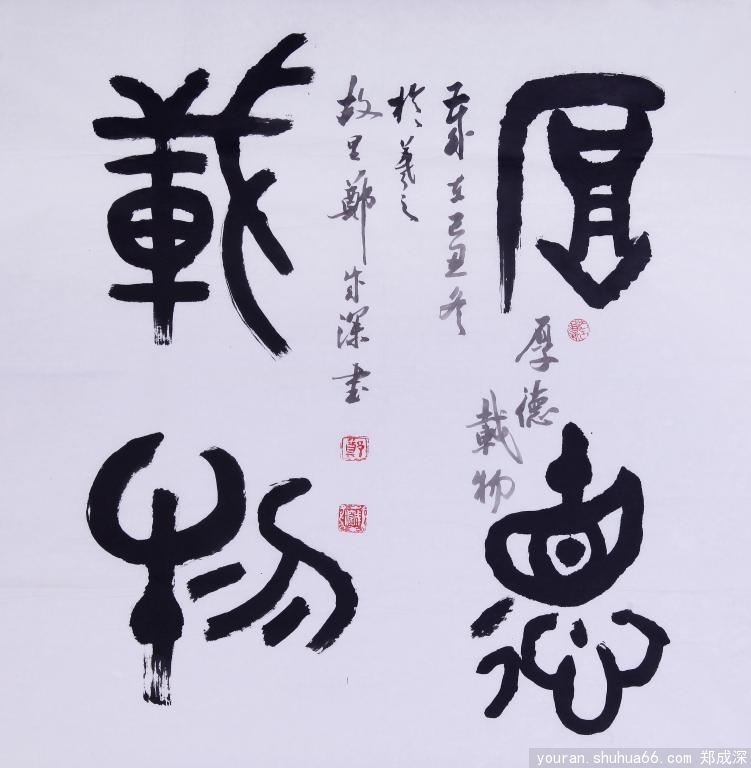 厚惪
載物
厚德
載物
歲在己丑冬
於羲之
故里鄭成深書
鄭
youran.shuhua66.com 郑成深